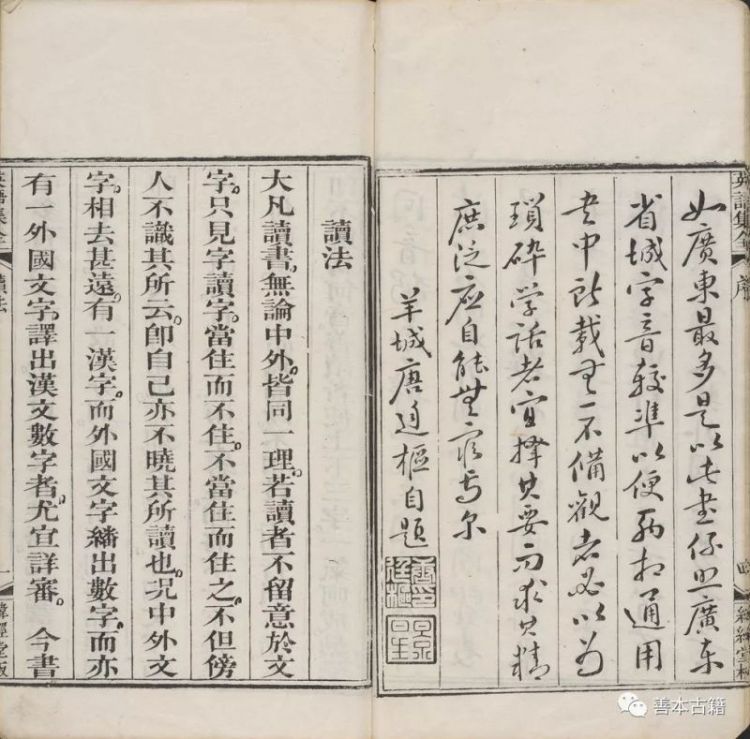 英語集全
如廣東最多是以此書係照廣東
省城字音較準以便兩相通用
書中所載無一不備觀者必以為
瑣碎学話者宜擇其要而求其精
庶泛應自能無窮焉尔
羊城唐廷樞自題
讀法
大凡讀書。無論中外。皆同一理。若讀者不留意於文
字。只見字讀字。當住而不住。不當住而住之。不但傍
人不識其所云。卽自己亦不曉其所讀也。况中外文
字。相去甚遠。有一漢字。而外國文字繙出數字。而亦
有一外國文字。譯出漢文數字者。尤宜詳審。今書
英語集全 讀法 一 緯經堂板
善本古籍